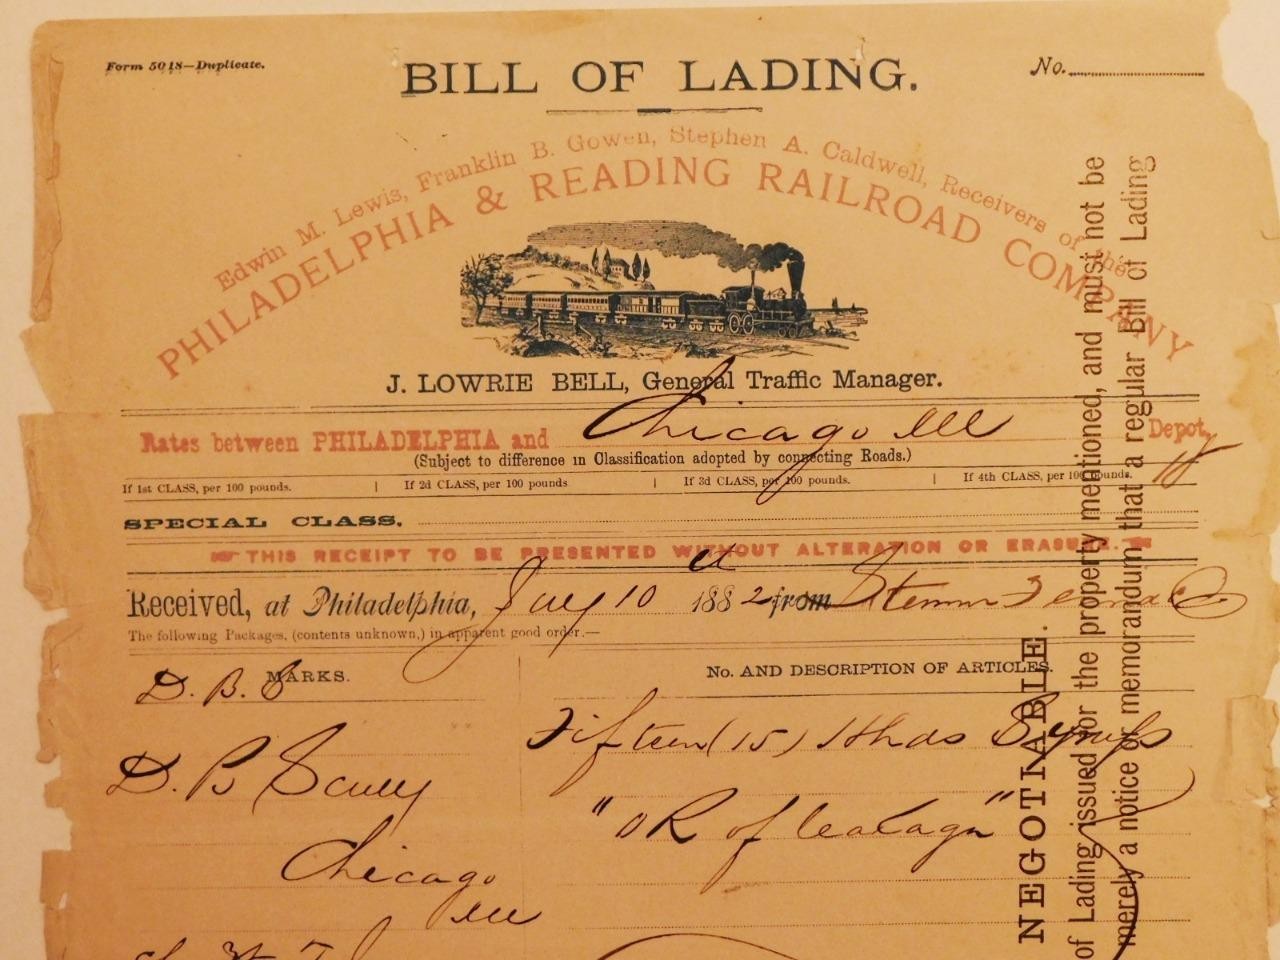 Form 5018—Duplicate.
BILL OF LADING.
No.
Edwin M. Lewis, Franklin B. Gowen, Stephen A. Caldwell, Receivers of the
PHILADELPHIA & READING RAILROAD COMPANY
J. LOWRIE BELL, General Traffic Manager.
Rates between PHILADELPHIA and Chicago Ill Depot,
(Subject to difference in Classification adopted by connecting Roads.)
If 1st CLASS, per 100 pounds. | If 2d CLASS, per 100 pounds | If 3d CLASS, per 100 pounds. | If 4th CLASS, per 100 pounds.
SPECIAL CLASS.
THIS RECEIPT TO BE PRESENTED WITHOUT ALTERATION OR ERASURE.
Received, at Philadelphia, July 10 1882 from
The following Packages, (contents unknown,) in apparent good order.—
MARKS.
No. AND DESCRIPTION OF ARTICLES.
D. B. S
Fifteen (15) Hhds Syrups
D. B Scully
"OR of leakage"
Chicago
Ill
NEGOTIABLE.
of Lading issued for the property mentioned, and must not be
merely a notice or memorandum that a regular Bill of Lading